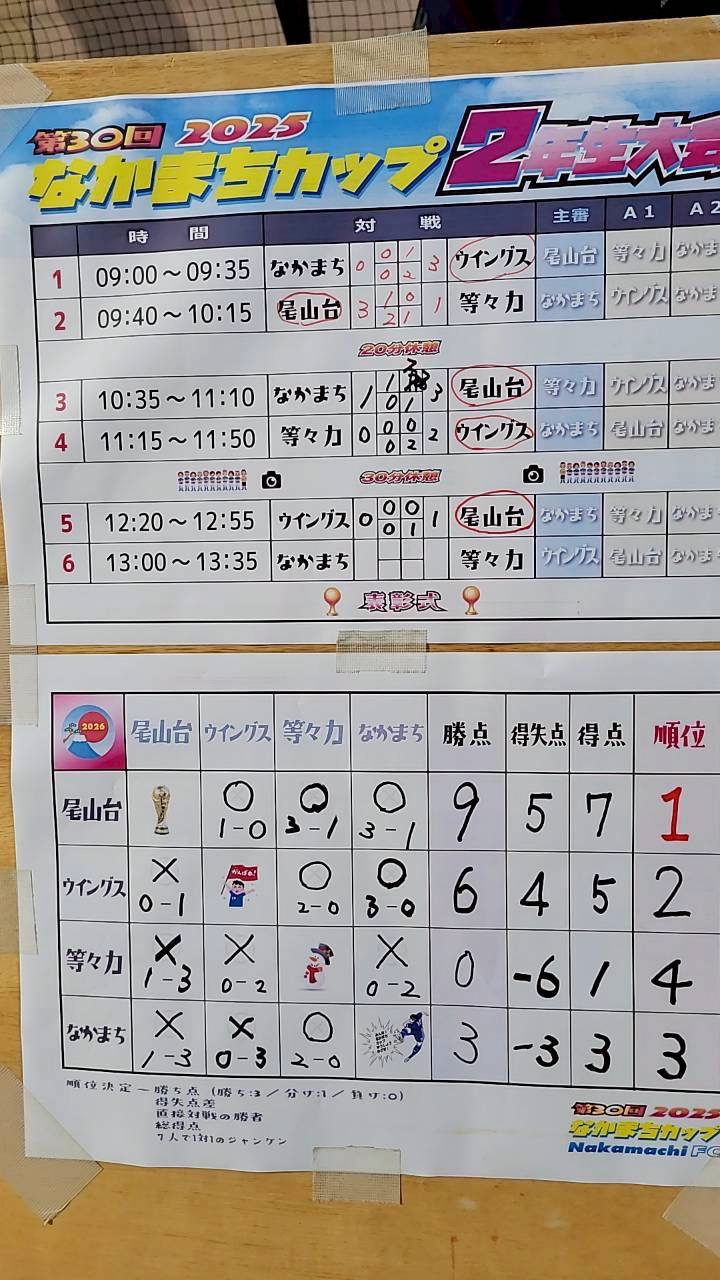 第30回 2025
なかまちカップ 2年生大会
時間 対戦 主審 A1 A2
1 09:00～09:35 なかまち 0 0 1 3 ウイングス 尾山台 等々力 なかま
0 2
2 09:40～10:15 尾山台 3 1 0 1 等々力 なかまち ウイングス なかま
2 1
20分休憩
3 10:35～11:10 なかまち 1 1 3 尾山台 等々力 ウイングス なかま
0 1
4 11:15～11:50 等々力 0 0 0 2 ウイングス なかまち 尾山台 なかま
0 2
30分休憩
5 12:20～12:55 ウイングス 0 0 0 1 尾山台 なかまち 等々力 なかま
0 1
6 13:00～13:35 なかまち 等々力 ウイングス 尾山台 なかま
表彰式
2026 尾山台 ウイングス 等々力 なかまち 勝点 得失点 得点 順位
尾山台 ○ ○ ○ 9 5 7 1
1-0 3-1 3-1
ウイングス × がんばれ! ○ ○ 6 4 5 2
0-1 2-0 3-0
等々力 × × × 0 -6 1 4
1-3 0-2 0-2
なかまち × × ○ 3 -3 3 3
1-3 0-3 2-0
順位決定～勝ち点(勝ち:3/分け:1/負け:0)
得失点差
直接対戦の勝者
総得点
7人で1対1のジャンケン
第30回 2025
なかまちカップ
Nakamachi FC